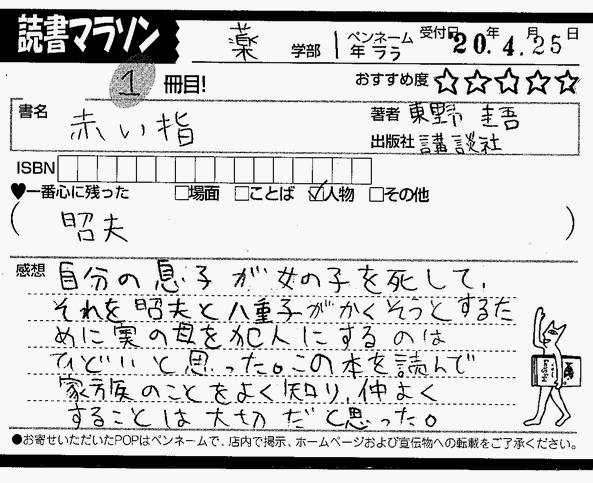 読書マラソン
薬 学部 1年 ペンネーム ララ 受付日 20年 4月 25日
1 冊目! おすすめ度 ☆☆☆☆☆
書名 赤い指 著者 東野 圭吾
出版社 講談社
ISBN
♥一番心に残った □場面 □ことば ☑人物 □その他
( 昭夫 )
感想 自分の息子が女の子を死して、
それを昭夫と八重子がかくそうとするた
めに実の母を犯人にするのは
ひどいと思った。この本を読んで
家族のことをよく知り、仲よく
することは大切だと思った。
●お寄せいただいたPOPはペンネームで、店内で掲示、ホームページおよび宣伝物への転載をご了承ください。